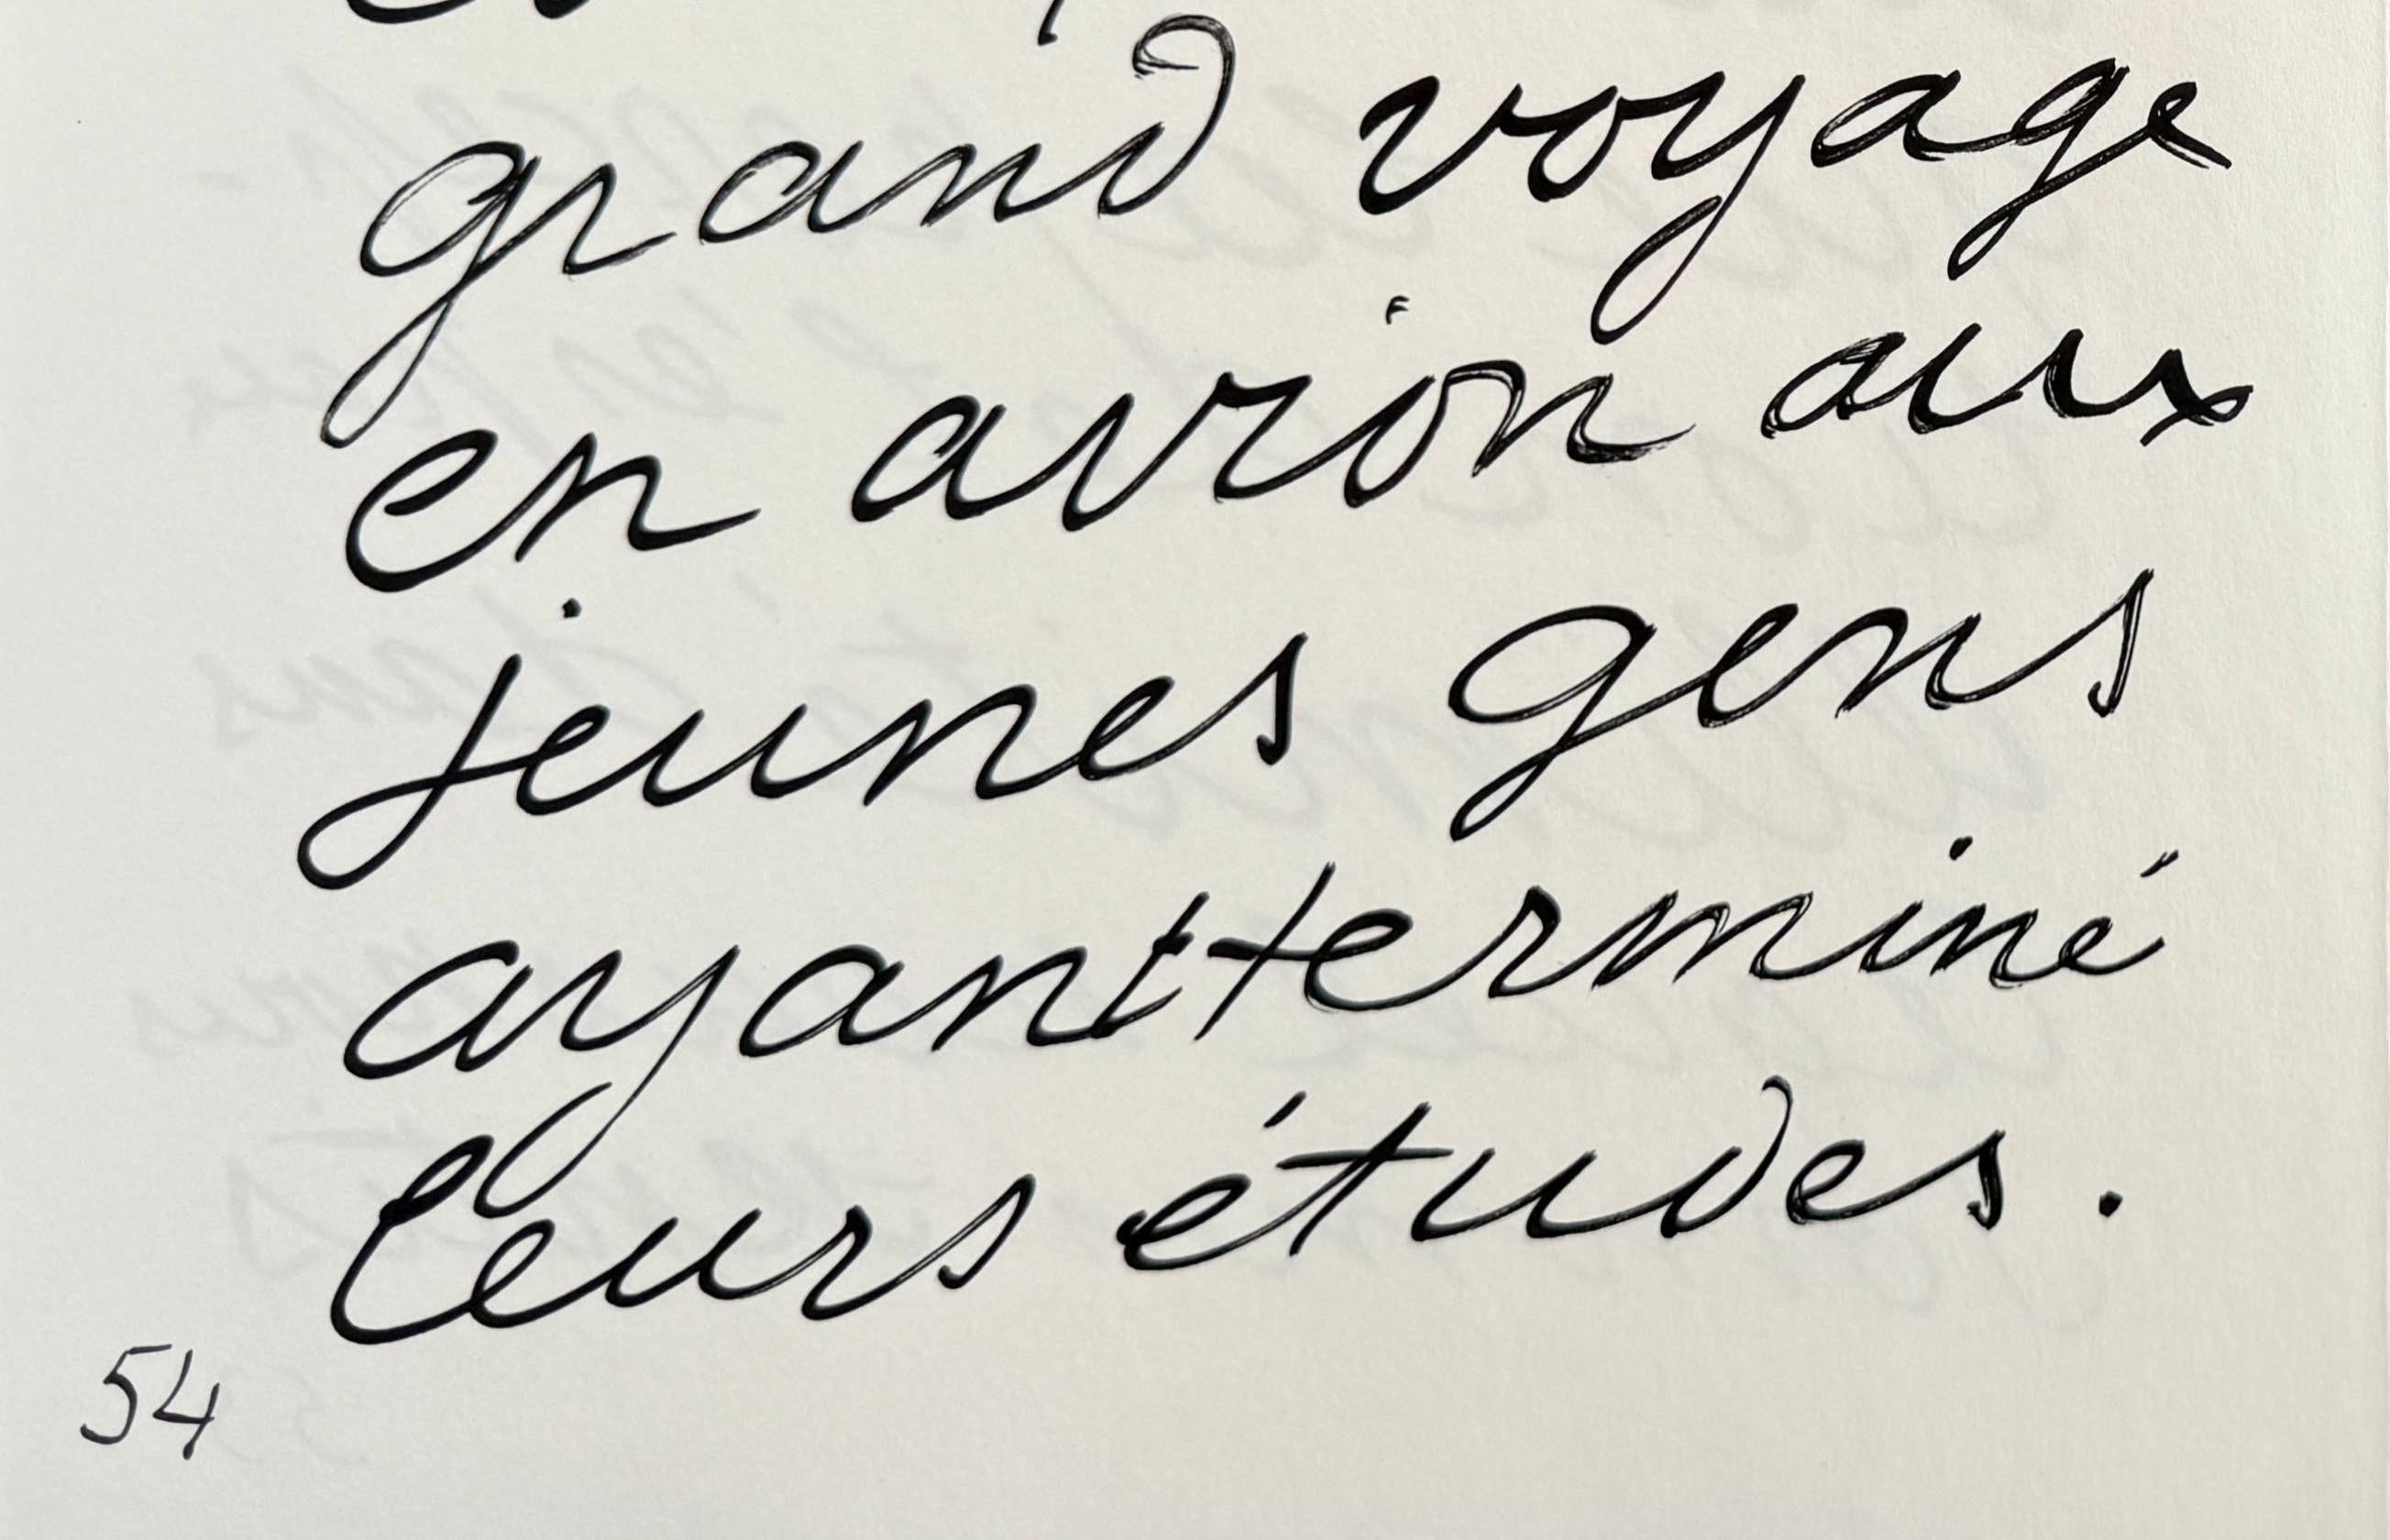 grand voyage
en avion aux
jeunes gens
ayant terminé
leurs études.
54